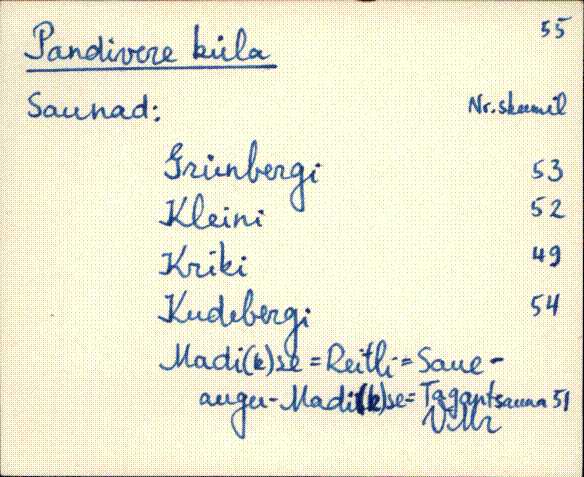 55
Pandivere küla
Saunad: Nr. skeemil
Grünbergi 53
Kleini 52
Kriki 49
Kudebergi 54
Madi(k)se = Reitli = Saue-
augu-Madi(k)se = Tagantsauna 51
VMr